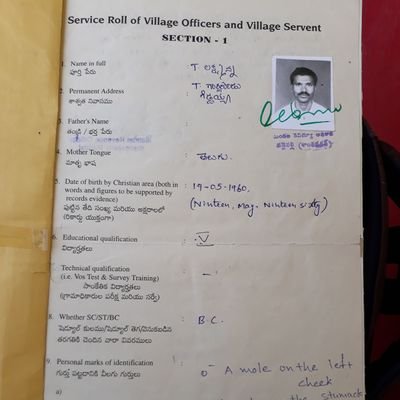 Service Roll of Village Officers and Village Servent
SECTION - 1
1. Name in full : T. లక్ష్మన్న
పూర్తి పేరు
2. Permanent Address : T.
శాశ్వత నివాసము
3. Father's Name
తండ్రి / భర్త పేరు
4. Mother Tongue : తెలుగు.
మాతృ భాష
5. Date of birth by Christian area (both in : 19-05-1960.
words and figures to be supported by
records evidence) (Ninteen, May, Ninteen sixty)
పుట్టిన తేది సంఖ్య మరియు అక్షరాలలో
(రికార్డు యుక్తంగా)
6. Educational qualification : V
విద్యార్హతలు
7. Technical qualification : -
(i.e. Vos Test & Survey Training)
సాంకేతిక విద్యార్హతలు
(గ్రామాధికారుల పరీక్ష మరియు సర్వే)
8. Whether SC/ST/BC : B.C.
షెడ్యూల్ కులము/షెడ్యూల్ తెగ/వెనుకబడిన
తరగతికి చెందిన వారా వివరములు
9. Personal marks of identification : A mole on the left
గుర్తు పట్టడానికి వీలగు గుర్తులు cheek
a) the stumack